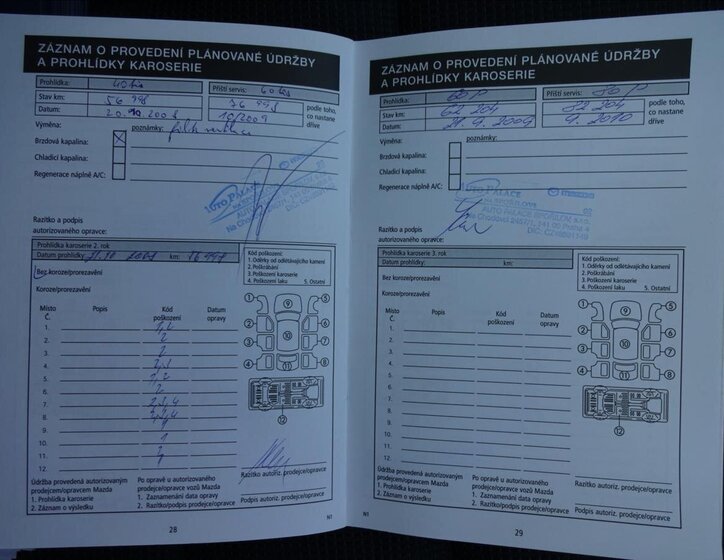 ZÁZNAM O PROVEDENÍ PLÁNOVANÉ ÚDRŽBY
A PROHLÍDKY KAROSERIE
Prohlídka:
Příští servis:
Stav km: 56 998
76 998
podle toho,
co nastane
dříve
Datum:
10/2009
Výměna:
poznámky:
Brzdová kapalina:
Chladicí kapalina:
Regenerace náplně A/C:
AUTO PALACE
mazda
Razítko a podpis
autorizovaného opravce:
Prohlídka karoserie 2. rok
Datum prohlídky:
km:
Bez koroze/prorezavění
Koroze/prorezavění
Kód poškození:
1. Oděrky od odletávajícího kamení
2. Poškrábání
3. Poškození karoserie
4. Poškození laku 5. Ostatní
Místo Popis Kód Datum
Č. poškození opravy
1.
2. 2
3. 2
4.
5.
6. 2
7.
8.
9.
10. 1
11.
12.
1 2 3 4 5 6 7 8 9 10 11 12
Razítko autoriz. prodejce/opravce
Údržba provedená autorizovaným
prodejcem/opravcem Mazda
1. Prohlídka karoserie
2. Záznam o výsledku
Po opravě u autorizovaného
prodejce/opravce vozů Mazda
1. Zaznamenání data opravy
2. Razítko/podpis prodejce/opravce
Podpis autoriz. prodejce/opravce
28
N1
ZÁZNAM O PROVEDENÍ PLÁNOVANÉ ÚDRŽBY
A PROHLÍDKY KAROSERIE
Prohlídka:
Příští servis:
Stav km: 62 204
82 204
podle toho,
co nastane
dříve
Datum: 9. 2009
9. 2010
Výměna:
poznámky:
Brzdová kapalina:
Chladicí kapalina:
Regenerace náplně A/C:
AUTO PALACE
mazda
AUTO PALACE SPOŘILOV s.r.o.
Na Chodovci 2457/1, 141 00 Praha 4
Razítko a podpis
autorizovaného opravce:
Prohlídka karoserie 3. rok
Datum prohlídky:
km:
Bez koroze/prorezavění
Koroze/prorezavění
Kód poškození:
1. Oděrky od odletávajícího kamení
2. Poškrábání
3. Poškození karoserie
4. Poškození laku 5. Ostatní
Místo Popis Kód Datum
Č. poškození opravy
1.
2.
3.
4.
5.
6.
7.
8.
9.
10.
11.
12.
1 2 3 4 5 6 7 8 9 10 11 12
Razítko autoriz. prodejce/opravce
Údržba provedená autorizovaným
prodejcem/opravcem Mazda
1. Prohlídka karoserie
2. Záznam o výsledku
Po opravě u autorizovaného
prodejce/opravce vozů Mazda
1. Zaznamenání data opravy
2. Razítko/podpis prodejce/opravce
Podpis autoriz. prodejce/opravce
N1
29